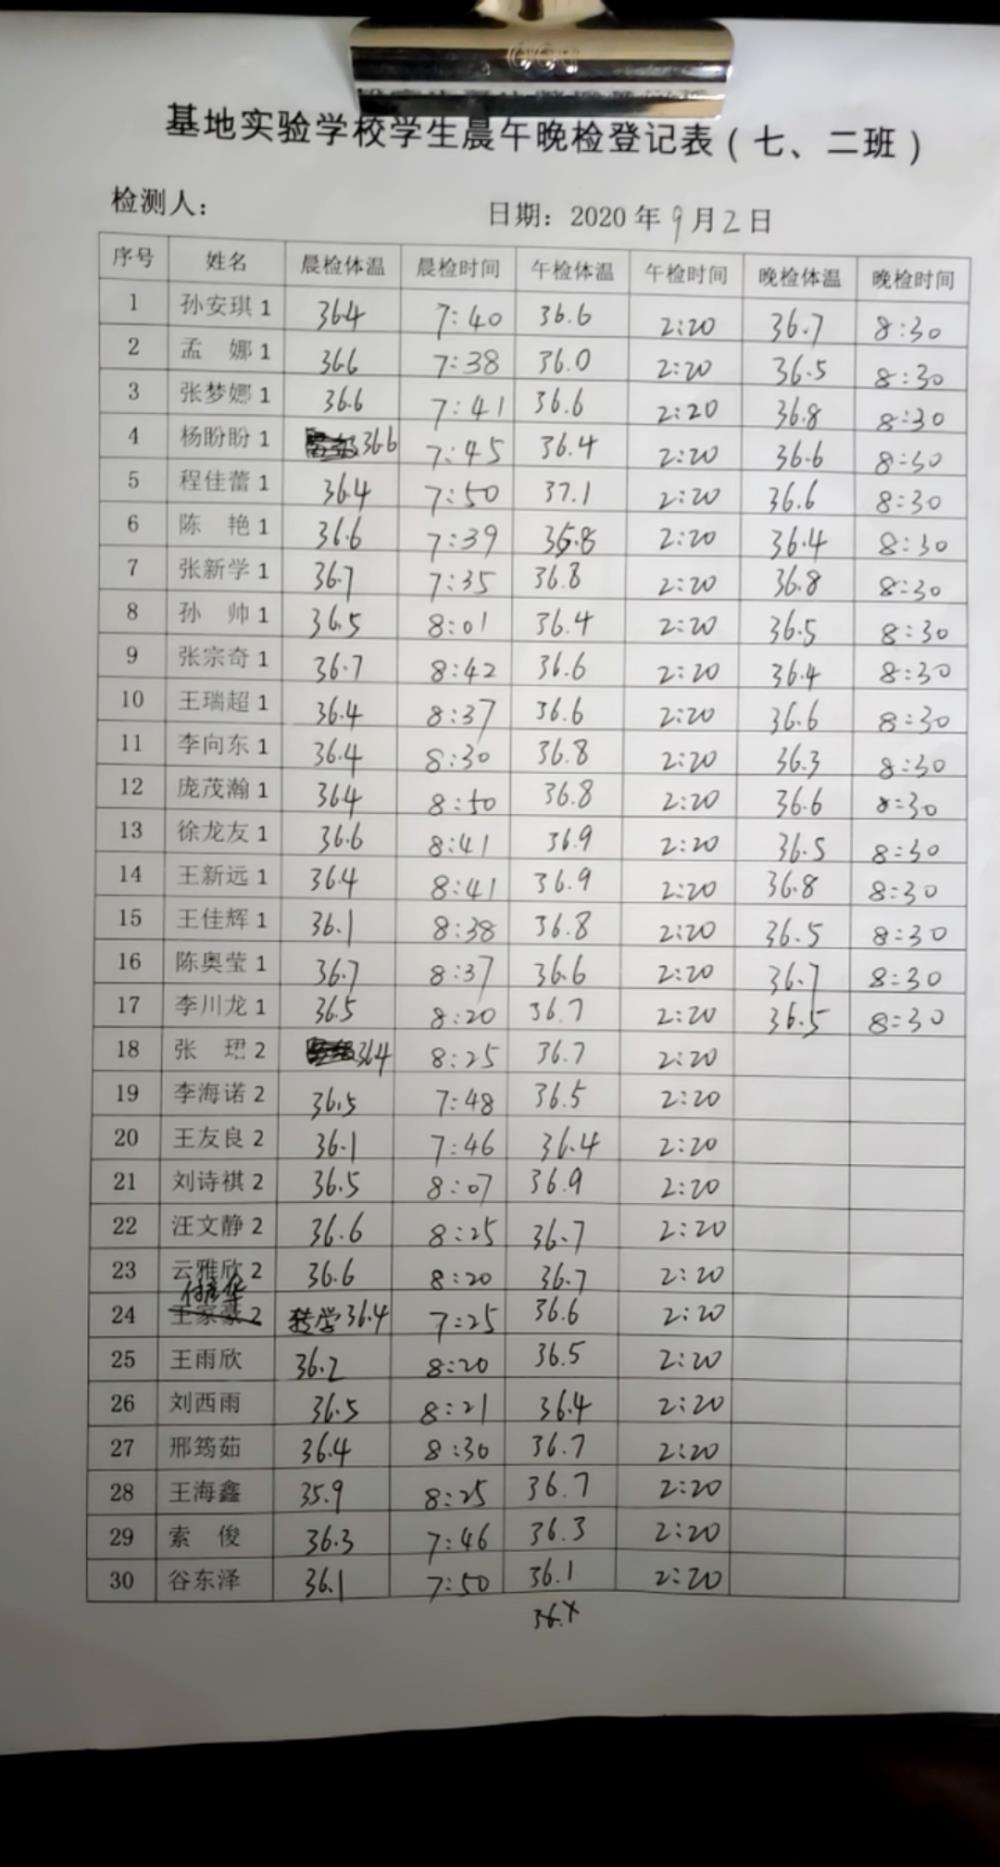 基地实验学校学生晨午晚检登记表（七、二班）
检测人： 日期：2020年9月2日
序号 姓名 晨检体温 晨检时间 午检体温 午检时间 晚检体温 晚检时间
1 孙安琪1 36.4 7:40 36.6 2:20 36.7 8:30
2 孟 娜1 36.6 7:38 36.0 2:20 36.5 8:30
3 张梦娜1 36.6 7:41 36.6 2:20 36.8 8:30
4 杨盼盼1 36.6 7:45 36.4 2:20 36.6 8:30
5 程佳蕾1 36.4 7:50 37.1 2:20 36.6 8:30
6 陈 艳1 36.6 7:39 36.8 2:20 36.4 8:30
7 张新学1 36.7 7:35 36.8 2:20 36.8 8:30
8 孙 帅1 36.5 8:01 36.4 2:20 36.5 8:30
9 张宗奇1 36.7 8:42 36.6 2:20 36.4 8:30
10 王瑞超1 36.4 8:37 36.6 2:20 36.6 8:30
11 李向东1 36.4 8:30 36.8 2:20 36.3 8:30
12 庞茂瀚1 36.4 8:50 36.8 2:20 36.6 8:30
13 徐龙友1 36.6 8:41 36.9 2:20 36.5 8:30
14 王新远1 36.4 8:41 36.9 2:20 36.8 8:30
15 王佳辉1 36.1 8:38 36.8 2:20 36.5 8:30
16 陈奥莹1 36.7 8:37 36.6 2:20 36.7 8:30
17 李川龙1 36.5 8:20 36.7 2:20 36.5 8:30
18 张 珺2 36.4 8:25 36.7 2:20
19 李海诺2 36.5 7:48 36.5 2:20
20 王友良2 36.1 7:46 36.4 2:20
21 刘诗祺2 36.5 8:07 36.9 2:20
22 汪文静2 36.6 8:25 36.7 2:20
23 云雅欣2 36.6 8:20 36.7 2:20
24 王家豪2 转学36.4 7:25 36.6 2:20
25 王雨欣 36.2 8:20 36.5 2:20
26 刘西雨 36.5 8:21 36.4 2:20
27 邢筠茹 36.4 8:30 36.7 2:20
28 王海鑫 35.9 8:25 36.7 2:20
29 索 俊 36.3 7:46 36.3 2:20
30 谷东泽 36.1 7:50 36.1 2:20